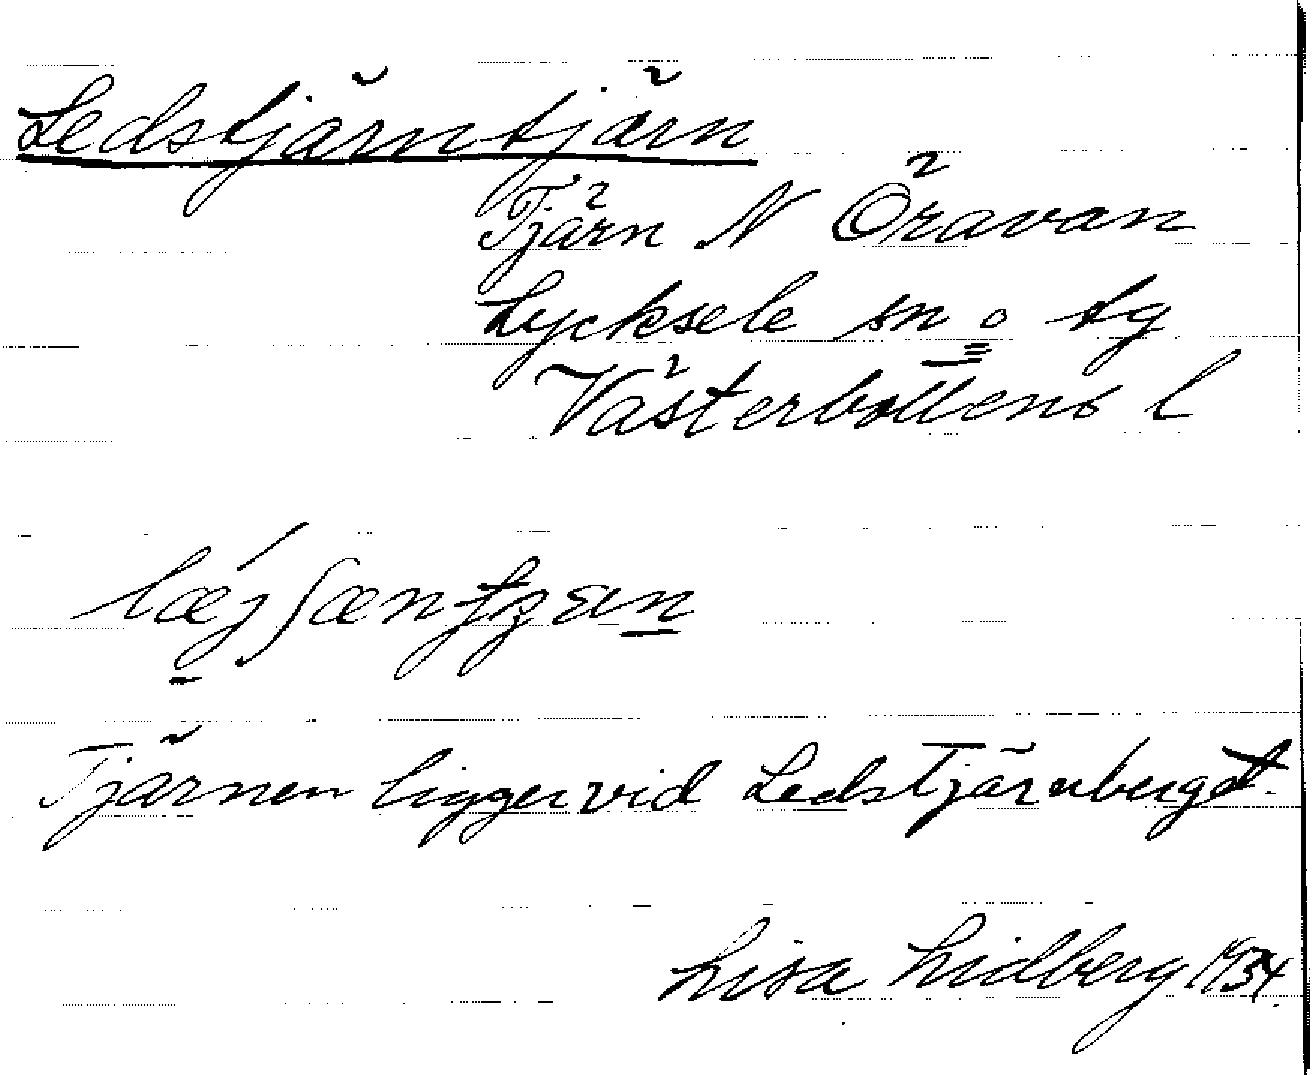 Ledstjärntjärn
Tjärn N Öravan
Lycksele sn o tg
Västerbottens l
Tjärnen ligger vid Ledstjärnberget.
Lisa Lidberg 1934.